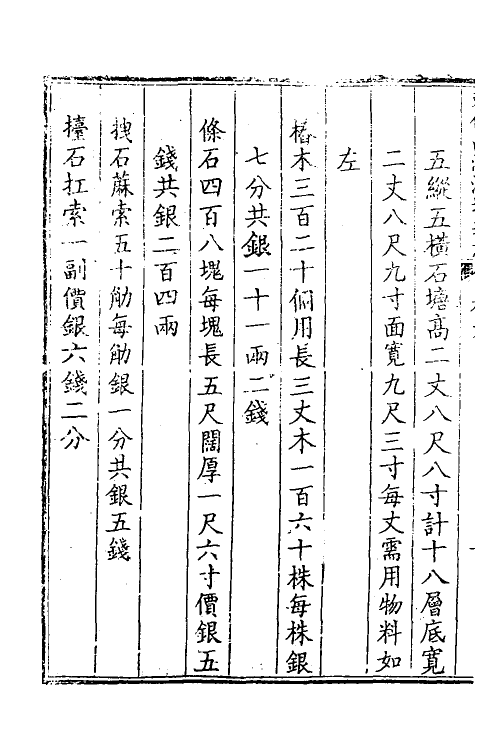 五縱五橫石塘髙二丈八尺八寸計十八層底寛
二丈八尺九寸面寛九尺三寸每丈需用物料如
左
樁木三百二十個用長三丈木一百六十株每株銀
七分共銀一十一兩二錢
條石四百八塊每塊長五尺闊厚一尺六寸價銀五
錢共銀二百四兩
拽石蔴索五十觔每觔銀一分共銀五錢
擡石扛索一副價銀六錢二分